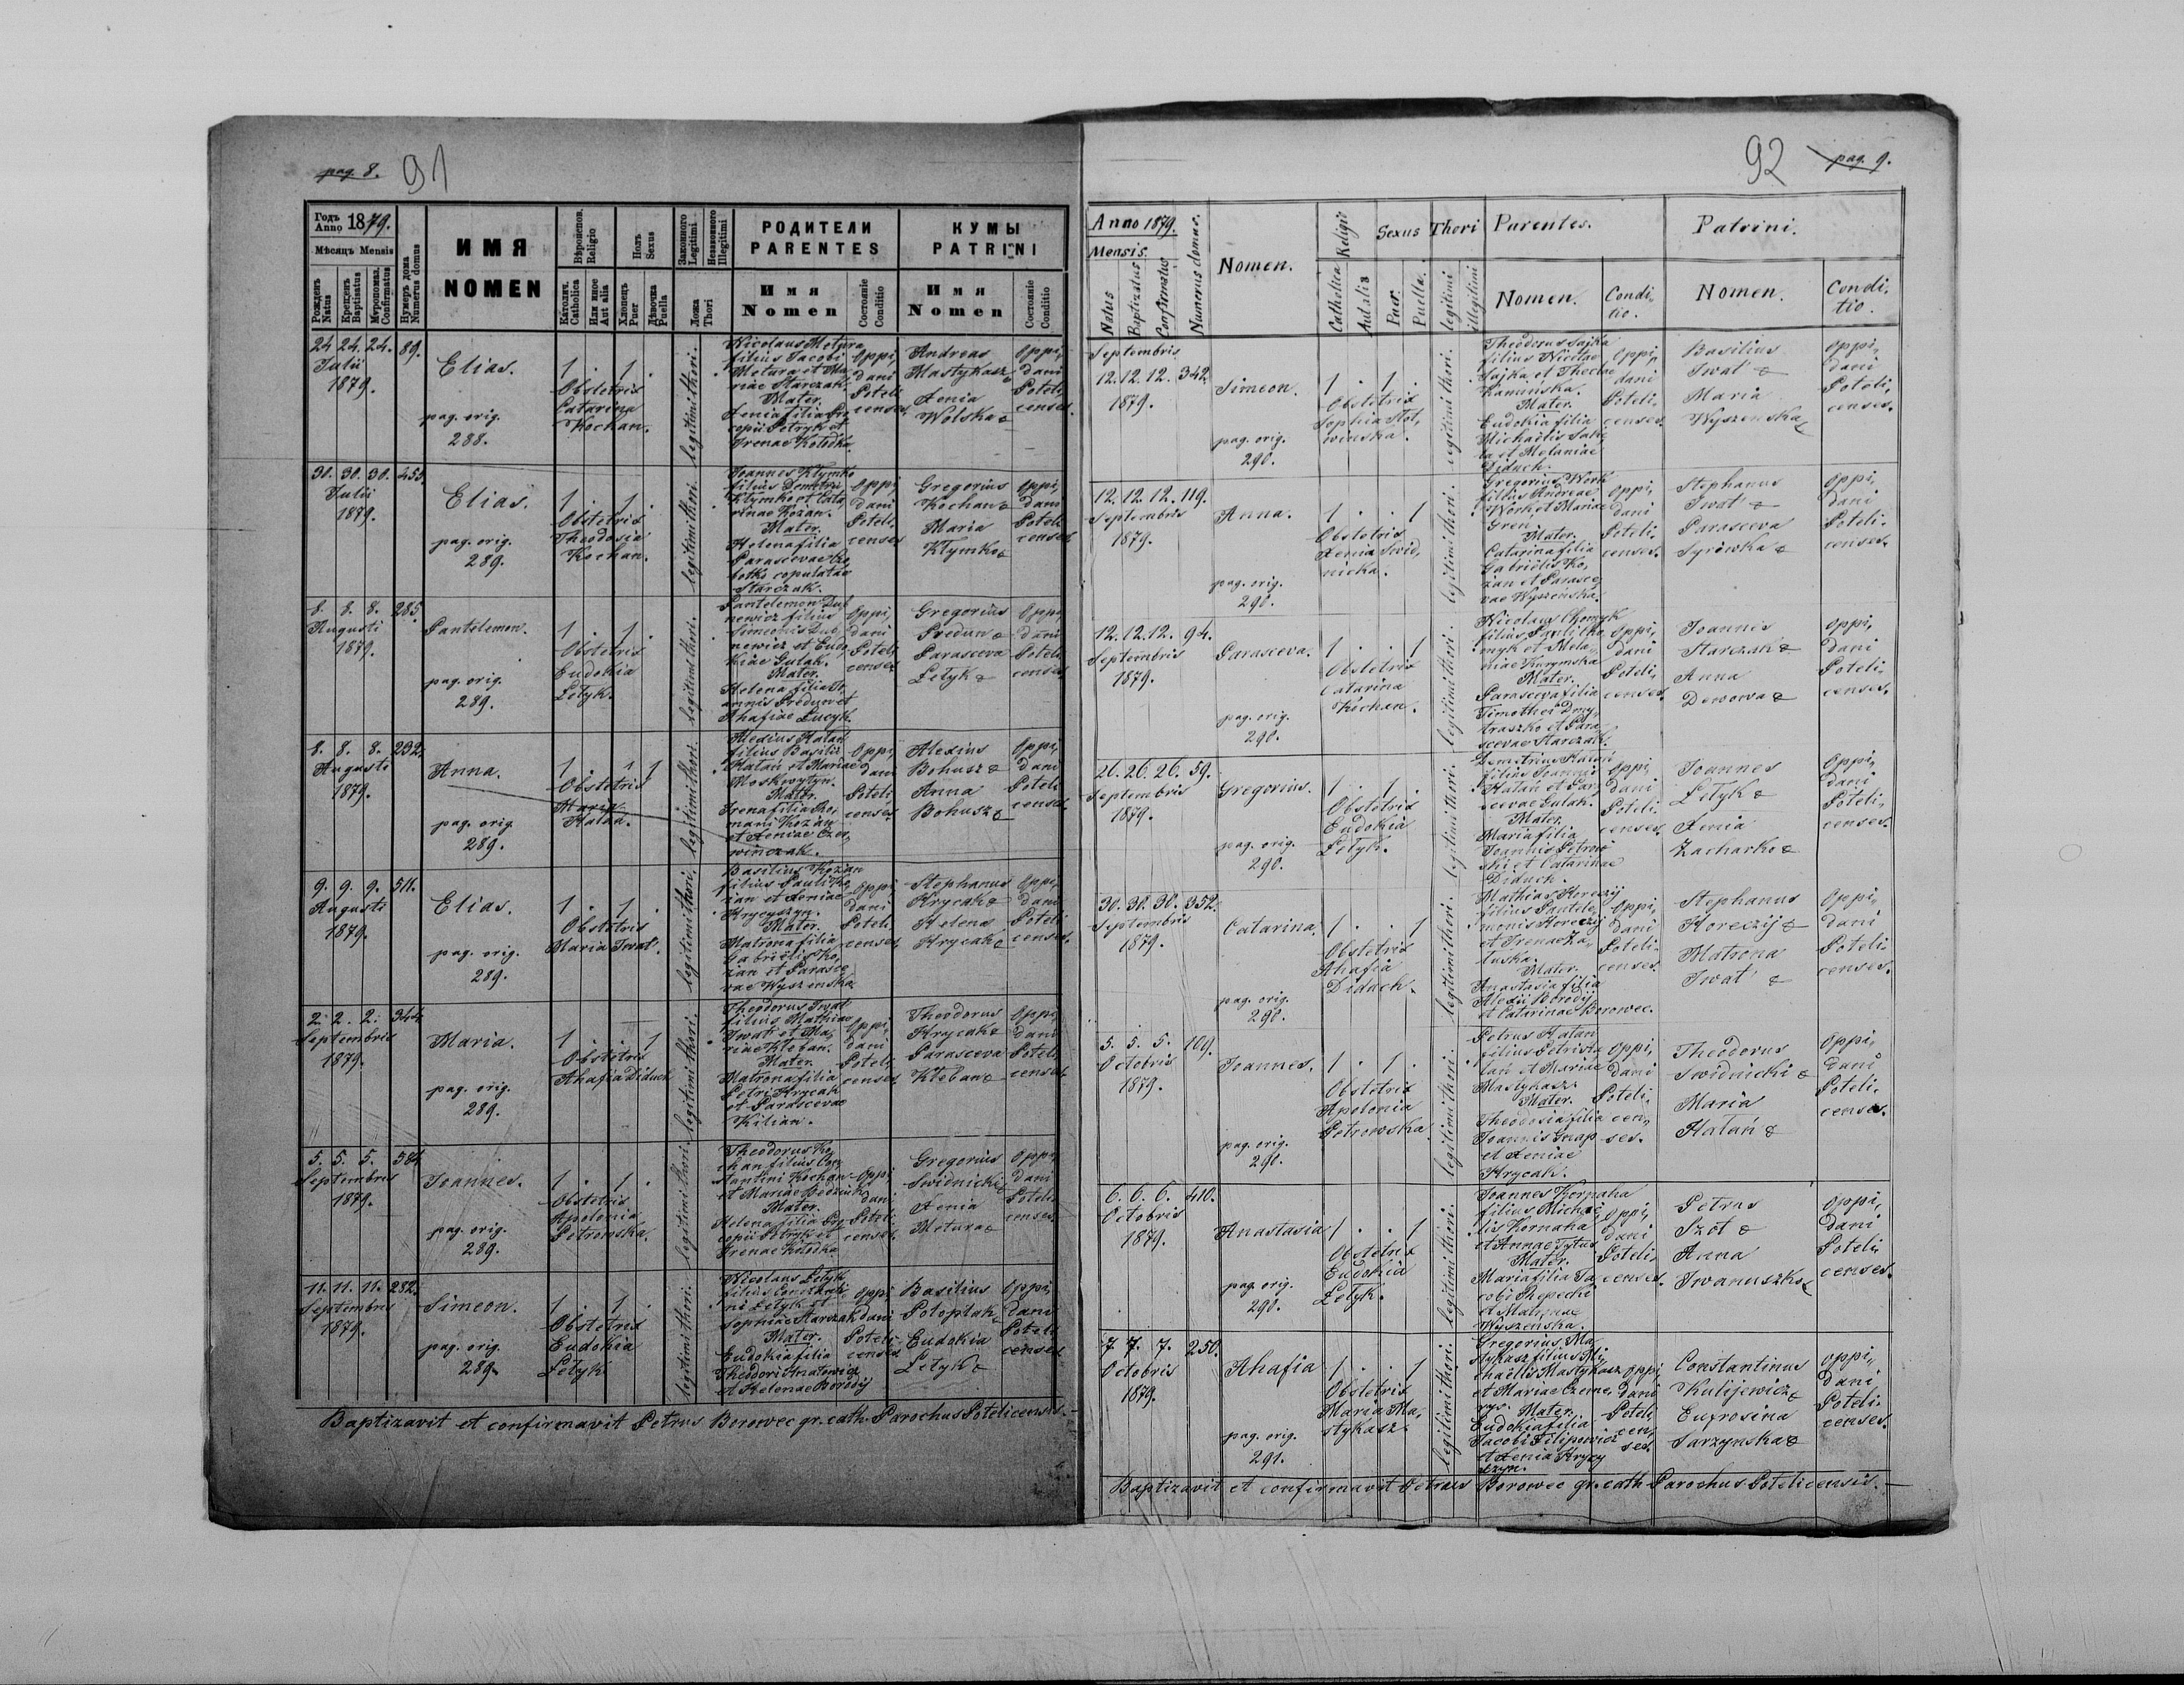 pag. 8. 91
Годъ Anno 1879.
Мѣсяцъ Mensis
Рожденъ Natus
Крещенъ Baptisatus
Мѵропомаз. Confirmatus
Нумеръ дома Numerus domus
ИМЯ
NOMEN
Вѣроисповѣд. Religio
Католич. Catholica
Или иное Aut alia
Полъ Sexus
Хлопецъ Puer
Дѣвочка Puella
Законного Legitimi
Незаконного Illegitimi
Ложа Thori
РОДИТЕЛИ
PARENTES
Имя
Nomen
Состояніе Conditio
КУМЫ
PATRINI
Имя
Nomen
Состояніе Conditio
24. 24. 24. 89.
Julii
1879.
Elias.
pag. orig.
288.
1 . 1 .
Obstetrix
Catarina
Kochan.
legitimi thori.
Nicolaus Metura
filius Jacobi
Metura et Ma,
riae Starczak.
Mater.
Xenia filia Pro,
copii Petryk et
Irenae Kotelka.
Oppi,
dani
Poteli,
censes.
Andreas
Mastykasz &
Xenia
Wolska &
Oppi,
dani
Poteli,
censes.
30. 30. 30. 455.
Julii
1879.
Elias.
pag. orig.
289.
1 . 1 .
Obstetrix
Theodosia
Kochan.
legitimi thori.
Joannes Klymko
filius Demetrii
Klymko et Cata,
rinae Kozan.
Mater.
Helena filia
Parascevae
copulatae
Starczak.
Oppi,
dani
Poteli,
censes
Gregorius
Kochan &
Maria
Klymko &
Oppi,
dani
Poteli,
censes
8. 8. 8. 285.
Augusti
1879.
Pantelemon.
pag. orig.
289.
1 . 1 .
Obstetrix
Eudokia
Letyk.
legitimi thori.
Pantelemon Dub
newicz filius
Simeonis Dub
newicz et Eudo
kiae Gulak.
Mater.
Helena filia Jo,
annis Predun et
Ahafiae Lucyk.
Oppi,
dani
Poteli,
censes
Gregorius
Predun &
Parasceva
Letyk &
Oppi,
dani
Poteli,
censes
8. 8. 8. 232.
Augusti
1879.
Anna.
pag. orig.
289.
1 . 1 1
Obstetrix
Maria
Hatan.
legitimi thori.
Alexius Hatan
filius Basilii
Hatan et Mariae
Moskwytyn.
Mater.
Irena filia Ro,
mani Kozan
et Xeniae Czer,
winczak.
Oppi,
dani
Poteli
censes
Alexius
Bohusz &
Anna
Bohusz &
Oppi,
dani
Poteli
censes
9. 9. 9. 511.
Augusti
1879.
Elias.
pag. orig.
289.
1 . 1 .
Obstetrix
Maria Iwat.
legitimi thori.
Basilius Kozan
filius Pauli Ko,
zan et Xeniae
Hrycyszyn.
Mater.
Matrona filia
Gabrielis Ko,
zan et Parasce
vae Wyszenska
Oppi
dani
Poteli
censes
Stephanus
Hrycak &
Helena
Hrycak &
Oppi,
dani
Poteli
censes.
2. 2. 2. 344.
Septembris
1879.
Maria.
pag. orig.
289.
1 . . 1
Obstetrix
Ahafia Diduch
legitimi thori.
Theodorus Iwat
filius Mathiae
Iwat et Ma,
riae Kleban.
Mater.
Matrona filia
Petri Hrycak
et Parascevae
Kilian.
Oppi,
dani
Poteli,
censes
Theodorus
Hrycak &
Parasceva
Kleban &
Oppi,
dani
Poteli,
censes
5. 5. 5. 584.
Septembris
1879.
Joannes.
pag. orig.
289.
1 . 1 .
Obstetrix
Apolonia
Petrowska.
legitimi thori.
Theodorus Ko,
chan filius Con,
stantini Kochan
et Mariae
Mater.
Helena filia Pro,
copii Petryk et
Irenae Kotelka
Oppi,
dani
Poteli,
censes.
Gregorius
Swidnicki &
Xenia
Metura &
Oppi,
dani
Poteli
censes.
11. 11. 11. 282.
Septembris
1879.
Simeon.
pag. orig.
289.
1 . 1 .
Obstetrix
Eudokia
Letyk
legitimi thori.
Nicolaus Letyk
filius Constanti,
ni Letyk et
Sophiae Starczak
Mater.
Eudokia filia
Theodori
et Helenae Borodij
Oppi,
dani
Poteli
censes
Basilius
Potoptak
Eudokia
Letyk &
Oppi,
dani
Poteli
censes
Baptizavit et confirmavit Petrus Borowec gr. cath. Parochus Potelicensis.
92 pag. 9.
Anno 1879.
Mensis.
Natus
Baptizatus
Confirmatus
Numerus domus.
Nomen.
Religio
Catholica
Aut alia
Sexus
Puer.
Puella.
Thori
legitimi
illegitimi
Parentes.
Nomen.
Condi,
tio.
Patrini.
Nomen.
Condi,
tio.
Septembris
12. 12. 12. 342.
1879.
Simeon.
pag. orig.
290.
1 . 1 .
Obstetrix
Sophia Stot,
winska.
legitimi thori.
Theodorus Sajka
filius Nicolai
Sajka et Theclae
Kaminska.
Mater.
Eudokia filia
Michaelis
et Melaniae
Diduch.
Oppi,
dani
Poteli,
censes.
Basilius
Iwat &
Maria
Wyszenska &
Oppi,
dani
Poteli,
censes.
12. 12. 12. 119.
Septembris
1879.
Anna.
pag. orig.
290.
1 . . 1
Obstetrix
Xenia Swid,
nicka.
legitimi thori.
Gregorius Work
filius Andreae
Work et Mariae
Gren
Mater.
Catarina filia
Gabrielis Ko,
zan et Parasce,
vae Wyszenska.
Oppi,
dani
Poteli,
censes.
Stephanus
Iwat &
Parasceva
Syrowka &
Oppi,
dani
Poteli,
censes.
12. 12. 12. 94.
Septembris
1879.
Parasceva.
pag. orig.
290.
1 . . 1
Obstetrix
Catarina
Kochan.
legitimi thori.
Nicolaus Chomyk
filius Pauli Cho,
myk et Mela,
niae Kurymska
Mater.
Parasceva filia
Timothei Dmy,
traszko et Para
scevae Starczak.
Oppi,
dani
Poteli,
censes.
Joannis
Starczak &
Anna
Derowa &
Oppi,
dani
Poteli,
censes.
26. 26. 26. 59.
Septembris
1879.
Gregorius.
pag. orig.
290.
1 . 1 .
Obstetrix
Eudokia
Letyk.
legitimi thori.
Demetrius Hatan
filius Joannis
Hatan et Para
scevae Gulak.
Mater.
Maria filia
Joannis Petrow
ski et Catarinae
Diduch.
Oppi,
dani
Poteli,
censes.
Joannes
Letyk &
Xenia
Zacharko &
Oppi,
dani
Poteli,
censes.
30. 30. 30. 352.
Septembris
1879.
Catarina.
pag. orig.
290.
1 . . 1
Obstetrix
Ahafia
Diduch.
legitimi thori.
Mathias Horeczij
filius Pantele,
monis Horeczij
et Irenae Za,
luska.
Mater.
Anastasia filia
Alexii Borodij
et Catarinae Borowec.
Oppi,
dani
Poteli
censes.
Stephanus
Horeczij &
Matrona
Iwat &
Oppi,
dani
Poteli
censes.
5. 5. 5. 109.
Octobris
1879.
Joannes.
pag. orig.
290.
1 . 1 .
Obstetrix
Apolonia
Petrowska
legitimi thori.
Petrus Hatan
filius Petri Ha
tan et Mariae
Mastykasz.
Mater.
Theodosia filia
Joannis Gnap
et Xeniae
Hrycak.
Oppi,
dani
Poteli,
cen,
ses.
Theodorus
Swidnicki &
Maria
Hatan &
Oppi,
dani
Poteli,
censes.
6. 6. 6. 410.
Octobris
1879.
Anastasia.
pag. orig.
290.
1 . . 1
Obstetrix
Eudokia
Letyk.
legitimi thori.
Joannes Kornaha
filius Michae,
lis Kornaha
et Annae Tytus
Mater.
Maria filia Ja,
cobi
et Matronae
Wyszenska.
Oppi,
dani
Poteli,
censes.
Petrus
Szot &
Anna
Iwanuszko &
Oppi,
dani
Poteli,
censes.
7. 7. 7. 250.
Octobris
1879.
Ahafia
pag. orig.
291.
1 . . 1
Obstetrix
Maria Ma,
stykasz.
legitimi thori.
Gregorius Ma,
stykasz filius Mi,
chaelis Mastykasz
et Mariae Czeme,
rys. Mater.
Eudokia filia
Jacobi Filipowicz
et Xenia Hrycy
szyn.
Oppi,
dani
Poteli,
cen,
ses.
Constantinus
Kulijewicz &
Eufrosina
Sarzynska &
Oppi,
dani
Poteli,
censes.
Baptizavit et confirmavit Petrus Borowec gr. cath. Parochus Potelicensis.